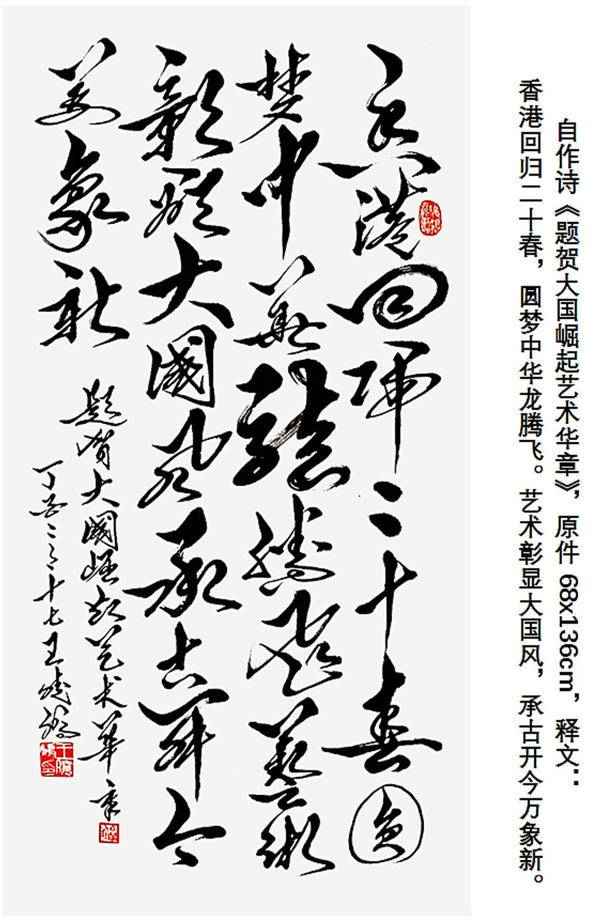 自作诗《题贺大国崛起艺术华章》,原件 68x136cm,释文:
香港回归二十春,圆梦中华龙腾飞。艺术彰显大国风,承古开今万象新。
香港回歸二十春圓
梦中華龍騰飛藝術
彰顯大國風承古開今
萬象新
題賀大國崛起艺术華章
丁酉二〇一七王